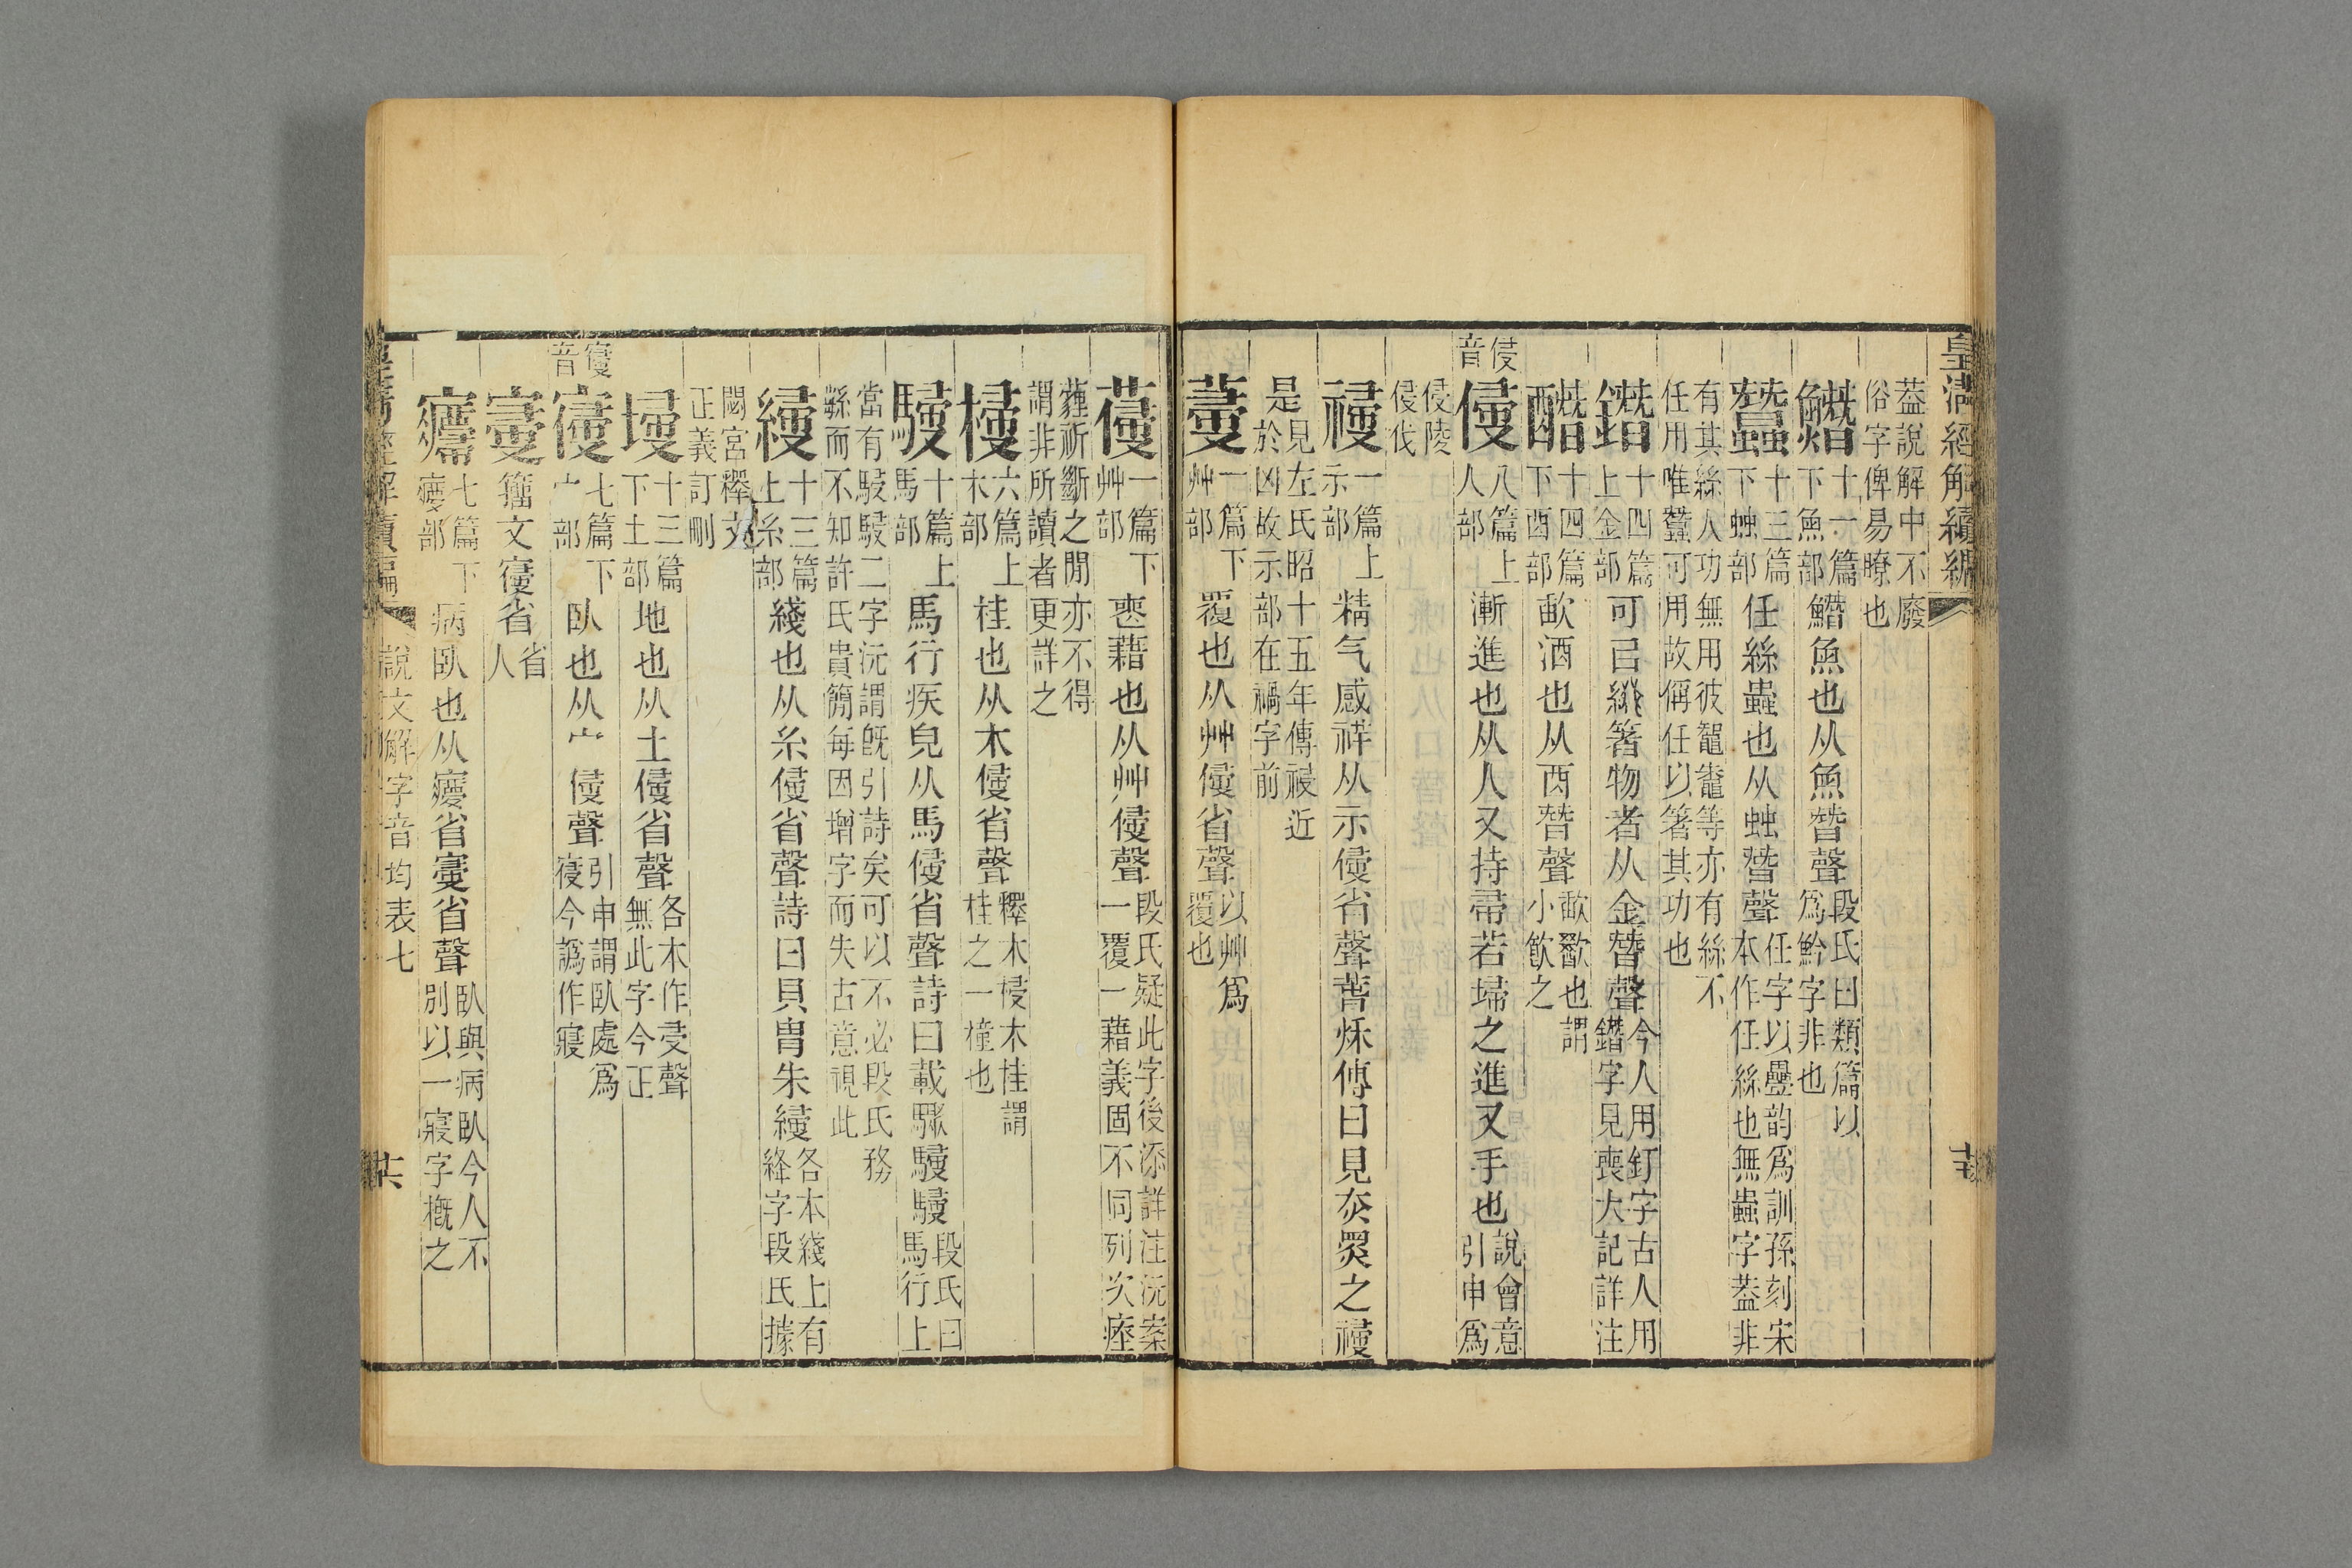 皇清經解續編
蓋說解中不廢
俗字俾易瞭也
鱭 十一篇下魚部 鱭魚也从魚朁聲 段氏曰類篇以爲魿字非也
蠶 十三篇下䖵部 任絲蟲也从䖵朁聲 任字以疊韵爲訓孫刻宋本作任絲也無蟲字葢非
有其絲人功無用彼鼅鼄等亦有絲不
任用唯蠶可用故偁任以箸其功也
鐕 十四篇上金部 可㠯綴箸物者从金朁聲 今人用釘字古人用鐕字見喪大記詳注
醋 十四篇下酉部 歃酒也从酉朁聲 歃歠也謂小飲之
侵音
侵 八篇上人部 漸進也从人又持帚若埽之進又手也 說會意引申爲
侵陵
侵伐
祲 一篇上示部 精气感祥从示侵省聲春秋傳曰見赤黑之祲
是見左氏昭十五年傳祲近
於凶故示部在禍字前
蔓 一篇下艸部 覆也从艸侵省聲 以艸爲覆也
葠 一篇下艸部 喪藉也从艸侵聲 段氏疑此字後添詳注沅案一覆一藉義固不同列次瘞
薶祈斷之閒亦不得
謂非所讀者更詳之
梫 六篇上木部 桂也从木侵省聲 釋木梫木桂謂桂之一種也
駸 十篇上馬部 馬行疾皃从馬侵省聲詩曰載驟駸駸 段氏曰馬行上
當有駸駸二字沅謂旣引詩矣可以不必段氏務
緐而不知許氏貴簡每因增字而失古意視此
綅 十三篇上糸部 綫也从糸侵省聲詩曰貝冑朱綅 各本綫上有絳字段氏據
閟宮釋文
正義訂刪
埐 十三篇下土部 地也从土侵省聲 各本作𠬶聲無此字今正
寑音
寑 七篇下宀部 臥也从宀侵聲 引申謂臥處爲寑今譌作寢
籒文寑省 省人
𤻎 七篇下㝱部 病臥也从㝱省𡪢省聲 臥與病臥今人不別以一寢字槪之
說文解字音均表七